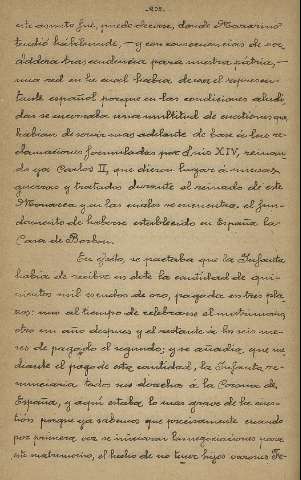 este asunto fué, puede decirse, donde Mazarino
tendió habilmente, - y con consecuencias de ver
dadera trascendencia para nuestra pátria, -
una red en la cual habia de caer el represen-
tante español porque en las condiciones aludi
das se encerraba una multitud de cuestiones que
habian de servir mas adelante de base á las re
clamaciones formuladas por Luis XIV, reinan
do ya Carlos II, que dieron lugar á inmensas
guerras y tratados durante el reinado de este
Monarca y en las cuales se encuentra el fun-
damento de haberse establecido en España la
Casa de Borbon.
En efecto, se pactaba que la Infanta
habia de recibir en dote la cantidad de qui-
nientos mil escudos de oro, pagada en tres pla
zos: uno al tiempo de celebrarse el matrimonio,
otro un año despues y el restante á los seis me-
ses de pagado el segundo; y se añadia, que me
diante el pago de esta cantidad, la Infanta re-
nunciaria todos sus derechos á la Corona de
España, y aquí estaba lo mas grave de la cues-
tión porque ya sabemos que precisamente cuando
por primera vez se iniciaron las negociaciones para
este matrimonio, el hecho de no tener hijos varones Fe-